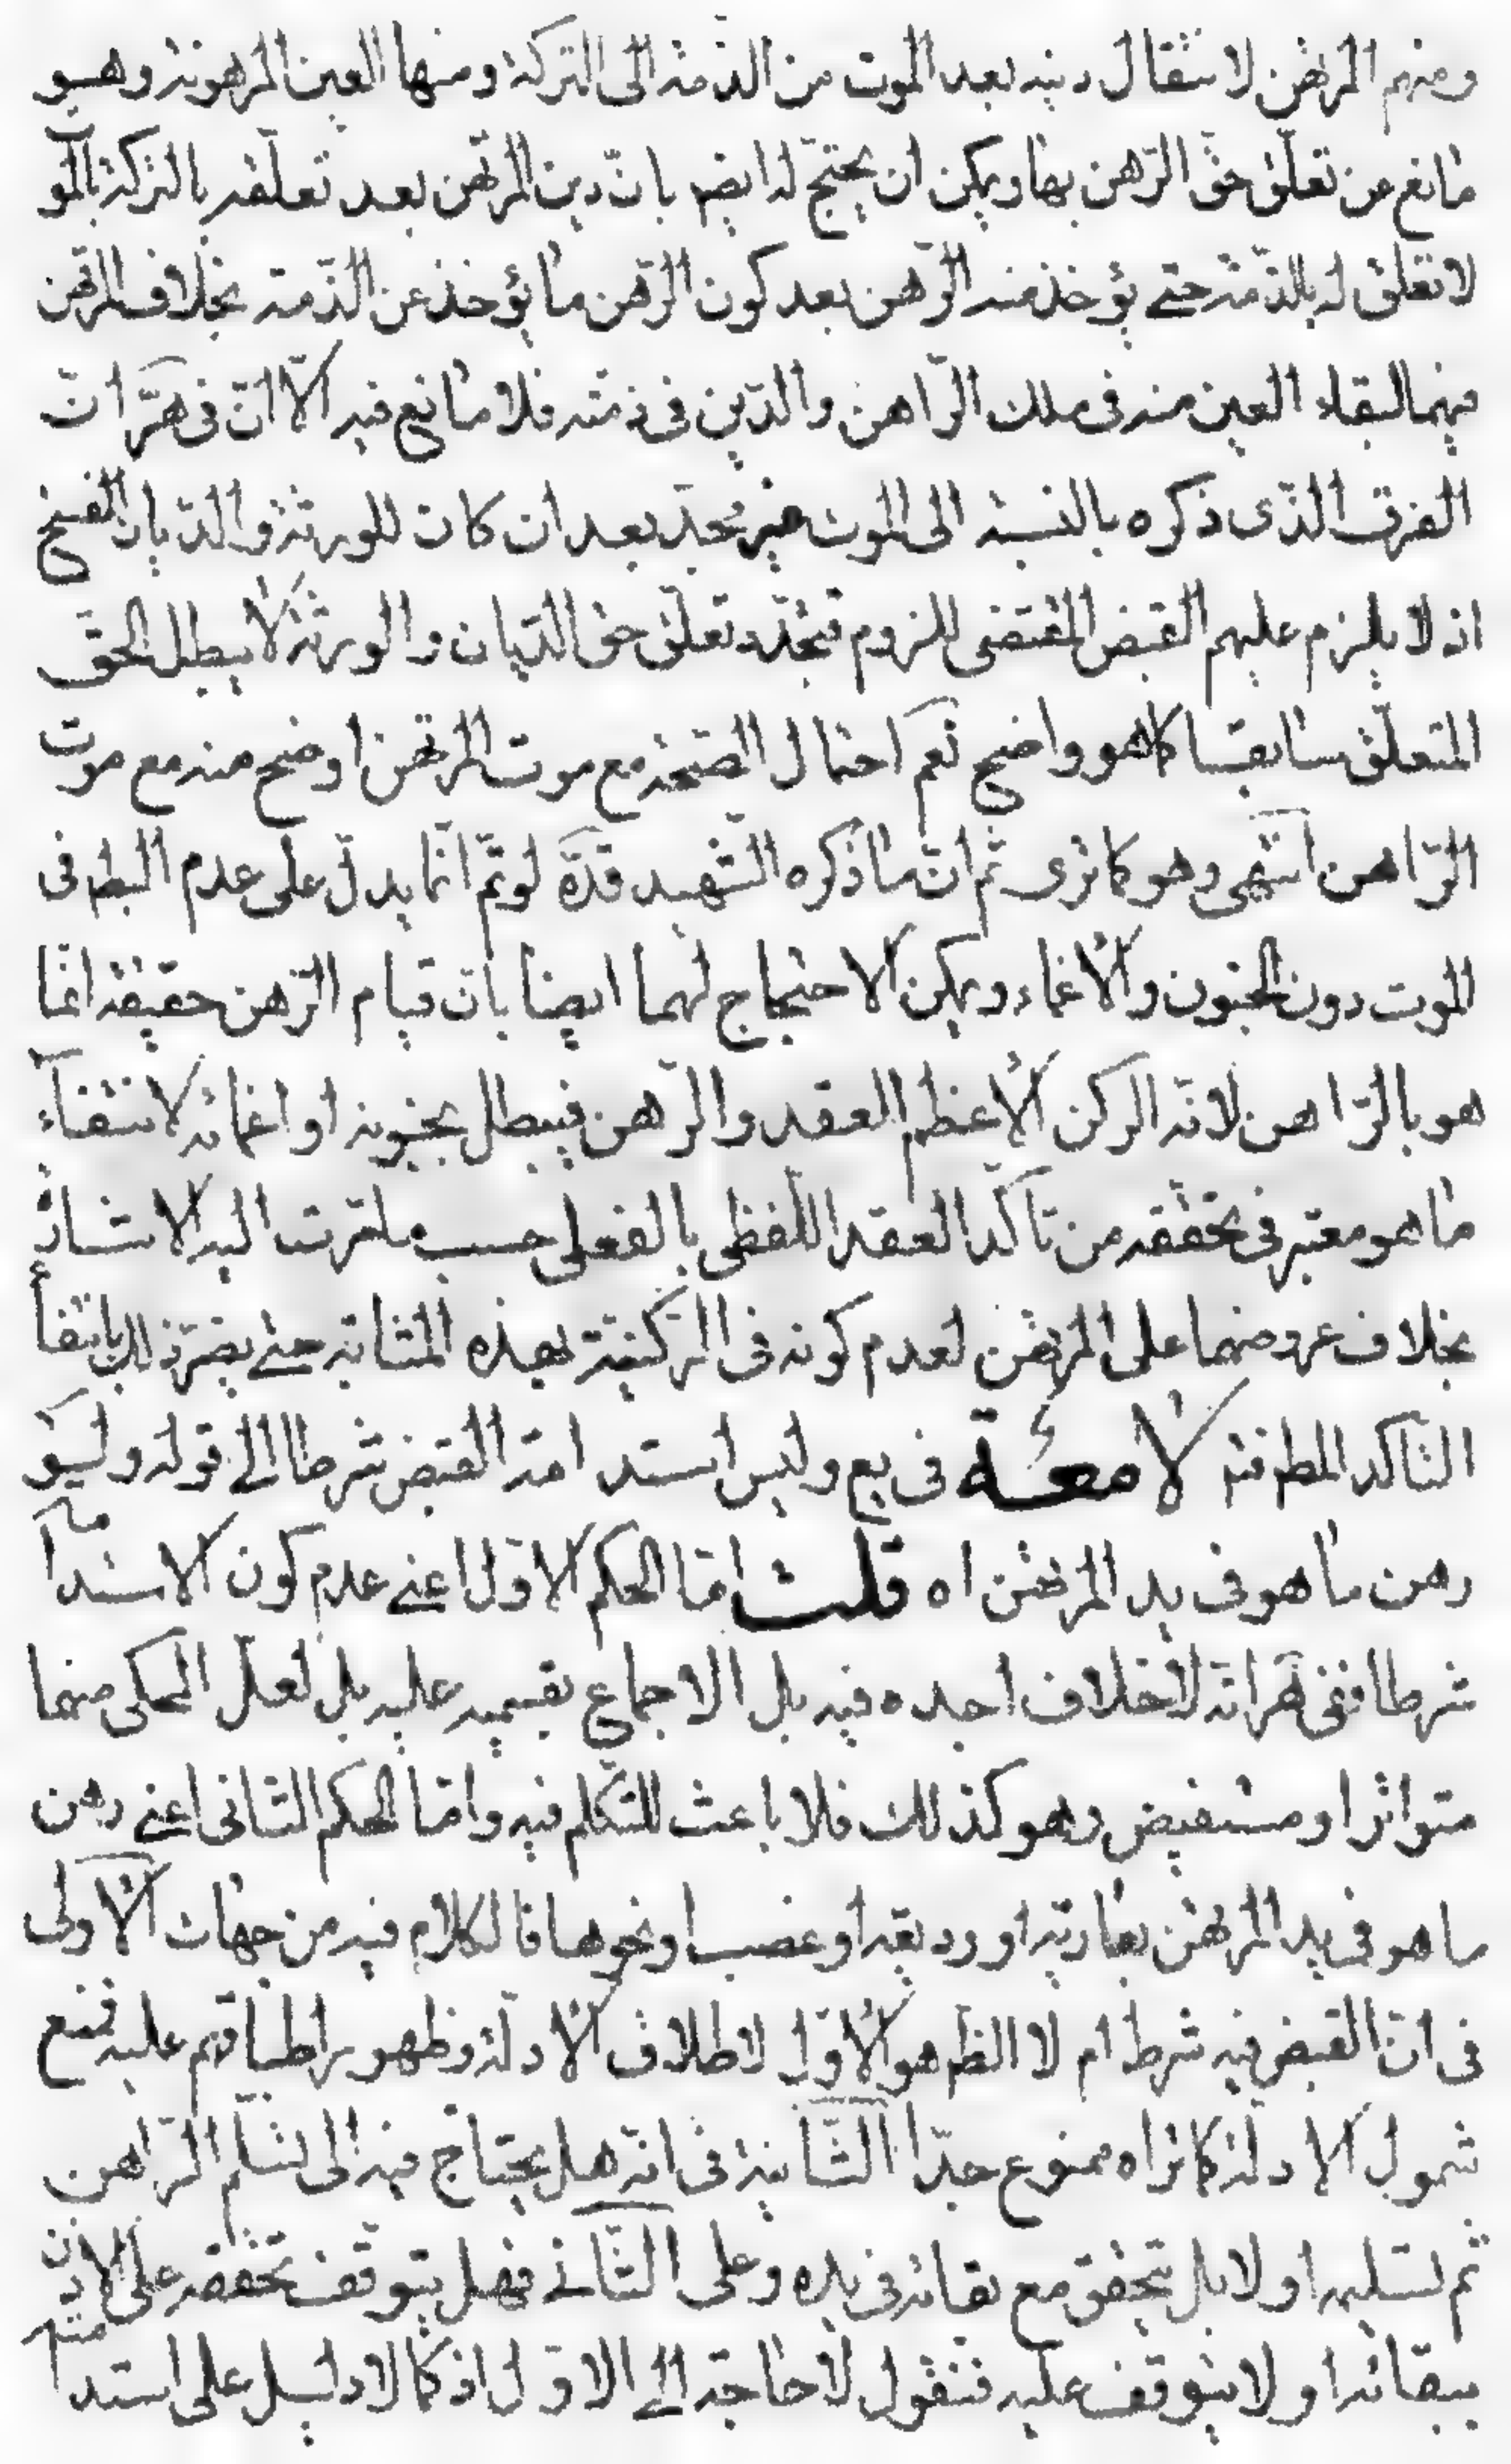 ومنهم المرتهن لانتقال دينه بعد الموت من الذمة الى التركة ومنها العين المرهونة وهو
مانع من تعلق حق الرهن بها ويمكن ان يحتج له ايضا بان دين المرتهن بعد تعلقه بالتركة بالمو
لا تعلق له بالذمة حتى يؤخذ منه الرهن بعد كون الرهن ما يؤخذ عن الذمة بخلاف المرتهن
فيهما لبقاء العين منه فى ملك الراهن والدين فى ذمته فلا مانع فيه الا ان فى هر ان
الفرق الذى ذكره بالنسبة الى الموت غير مجد بعد ان كان للورثة والديان الفسخ
اذ لا يلزم عليهم القبض المقتضى للزوم فتجدد تعلق حق الديان والورثة لا يبطل الحق
المتعلق سابقا كما هو واضح نعم احتمال الصحة مع موت المرتهن اوضح منه مع موت
الراهن انتهى وهو كما ترى ثم ان ما ذكره الشهيد قده لو تم انما يدل على عدم البطم فى
الموت دون الجنون والاغماء ويمكن الاحتجاج لهما ايضا بان قيام الرهن حقيقة انما
هو بالراهن لانه الركن الاعظم للعقد والرهن فيبطل بجنونه او اغمائه لانتفاء
ما هو معتبر فى تحققه من تاكد العقد اللفظى بالفعلى حسب ما مرت اليه الاشارة
بخلاف عروضهما على المرتهن لعدم كونه فى الركنية بهذه المثابة حتى يضر ذلك بانتفا
التاكد المطم فيه لامعة فى يع وليس استدامة القبض شرطا الى قوله ولو
رهن ما هو فى يد المرتهن اه قلت اما الحكم الاول اعنى عدم كون الاستدامة
شرطا ففى هر انه لا خلاف اجده فيه بل الاجماع بقسميه عليه بل لعل المحكى منهما
متواتر او مستفيض وهو كذلك فلا باعث للتكلم فيه واما الحكم الثانى اعنى رهن
ما هو فى يد المرتهن بعارية او وديعة او غصب او نحوها فالكلام فيه من جهات الاولى
فى ان القبض فيه شرط ام لا الظم هو الاول لاطلاق الادلة وظهور اطباقهم عليه فمنع
شمول الادلة كما تراه ممنوع جدا الثانية فى انه هل يحتاج فيه الى تسلم الراهن
ثم تسليمه او لا بل يتحقق مع بقائه فى يده وعلى الثانى فهل يتوقف تحققه على الاذن منه
ببقائه او لا يتوقف عليه فنقول لا حاجة الى الاول اذ كما لا دليل على استدا